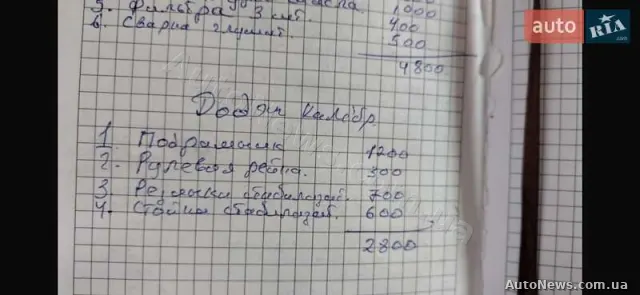 масла. 1000
5. Фильтра 3 шт. 400
6. Сварка глушит. 500
4800
Додж Калибр.
1. Подрамник 1200
2. Рулевая рейка. 300
3. Резинки стабилизат. 700
4. Стойки стабилизат. 600
2800
auto RIA .com
AutoNews.com.ua